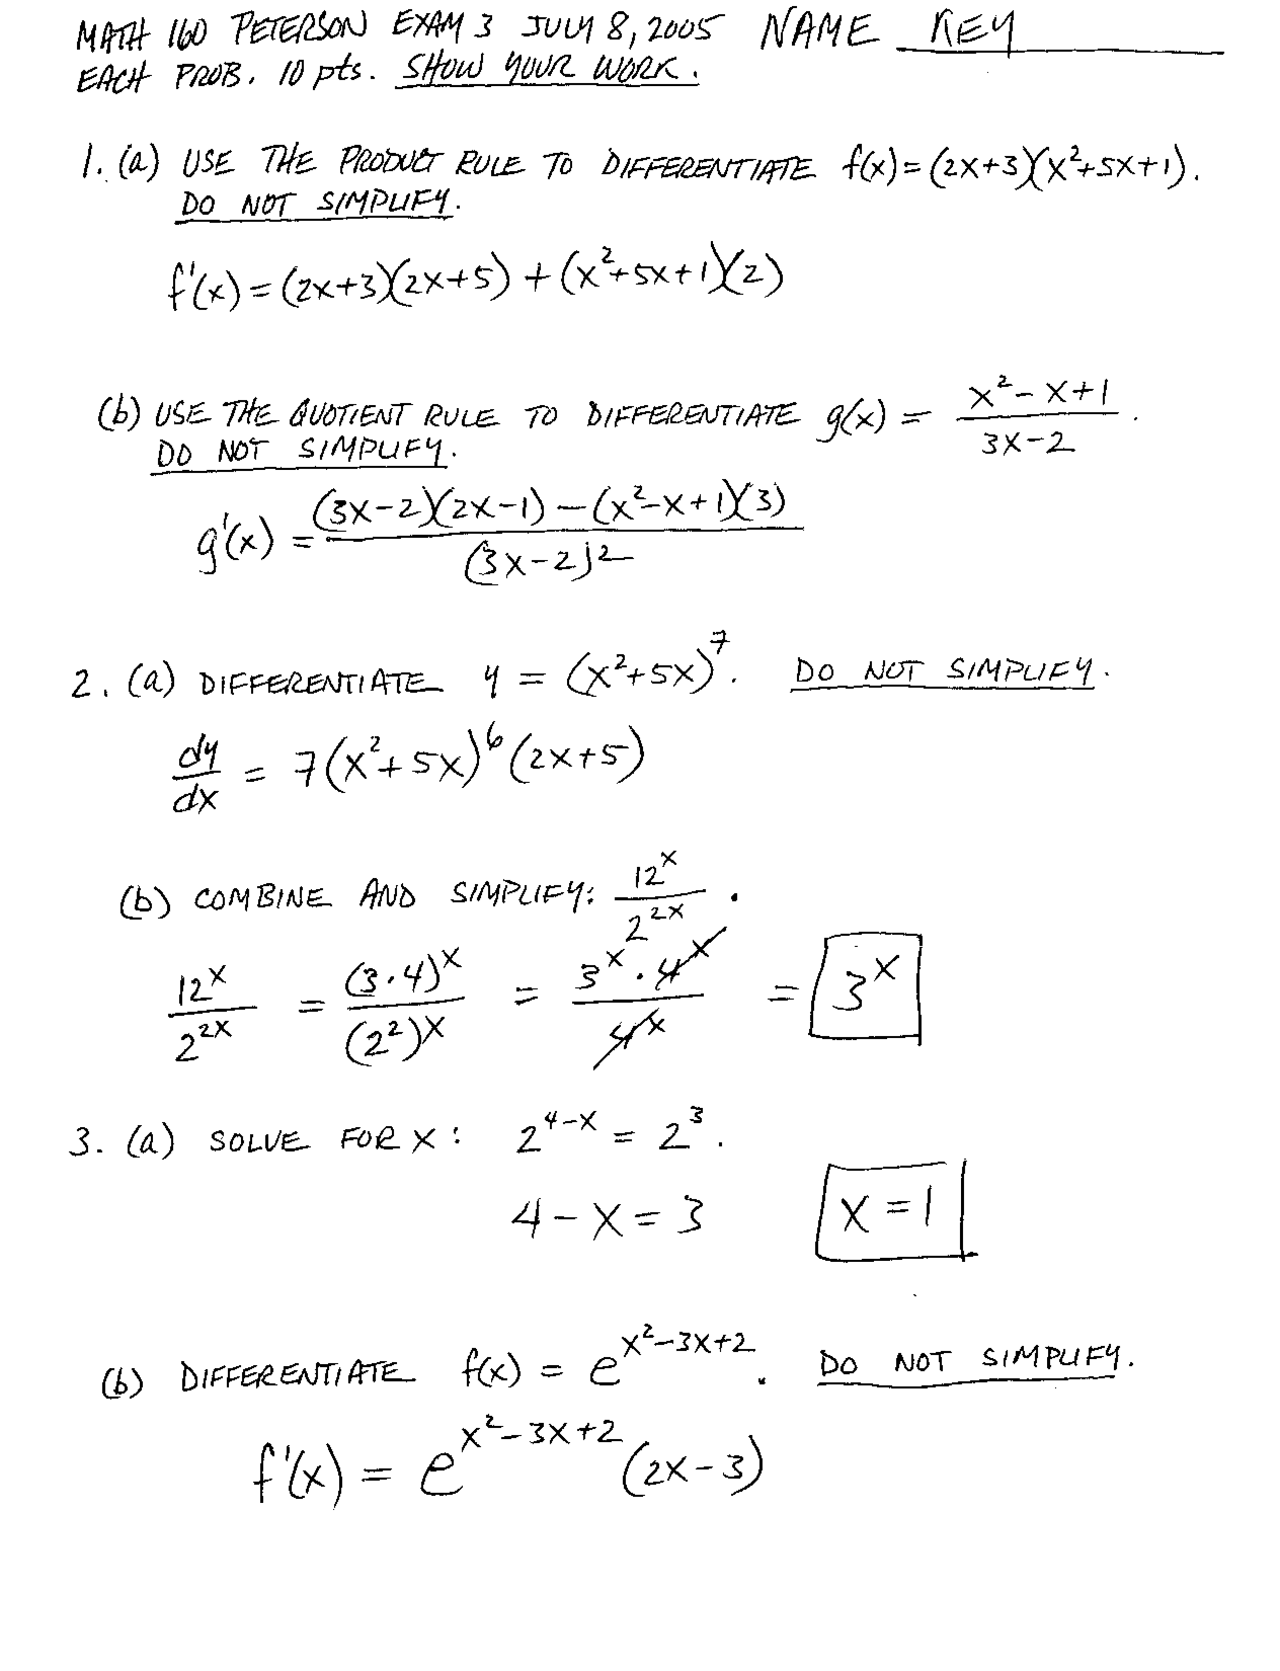 MATH 160 PETERSON EXAM 3 JULY 8, 2005 NAME KEY
EACH PROB. 10 pts. SHOW YOUR WORK.
1. (a) USE THE PRODUCT RULE TO DIFFERENTIATE f(x) = (2x+3)(x²+5x+1).
DO NOT SIMPLIFY.
f'(x) = (2x+3)(2x+5) + (x²+5x+1)(2)
(b) USE THE QUOTIENT RULE TO DIFFERENTIATE g(x) = (x²-x+1)/(3x-2).
DO NOT SIMPLIFY.
g'(x) = ((3x-2)(2x-1) - (x²-x+1)(3))/(3x-2)²
2. (a) DIFFERENTIATE y = (x²+5x)⁷. DO NOT SIMPLIFY.
dy/dx = 7(x²+5x)⁶(2x+5)
(b) COMBINE AND SIMPLIFY: 12^x/2^(2x).
12^x/2^(2x) = (3·4)^x/(2²)^x = 3^x·4^x/4^x = 3^x
3. (a) SOLVE FOR X: 2^(4-x) = 2³.
4-x = 3 x = 1
(b) DIFFERENTIATE f(x) = e^(x²-3x+2). DO NOT SIMPLIFY.
f'(x) = e^(x²-3x+2) (2x-3)